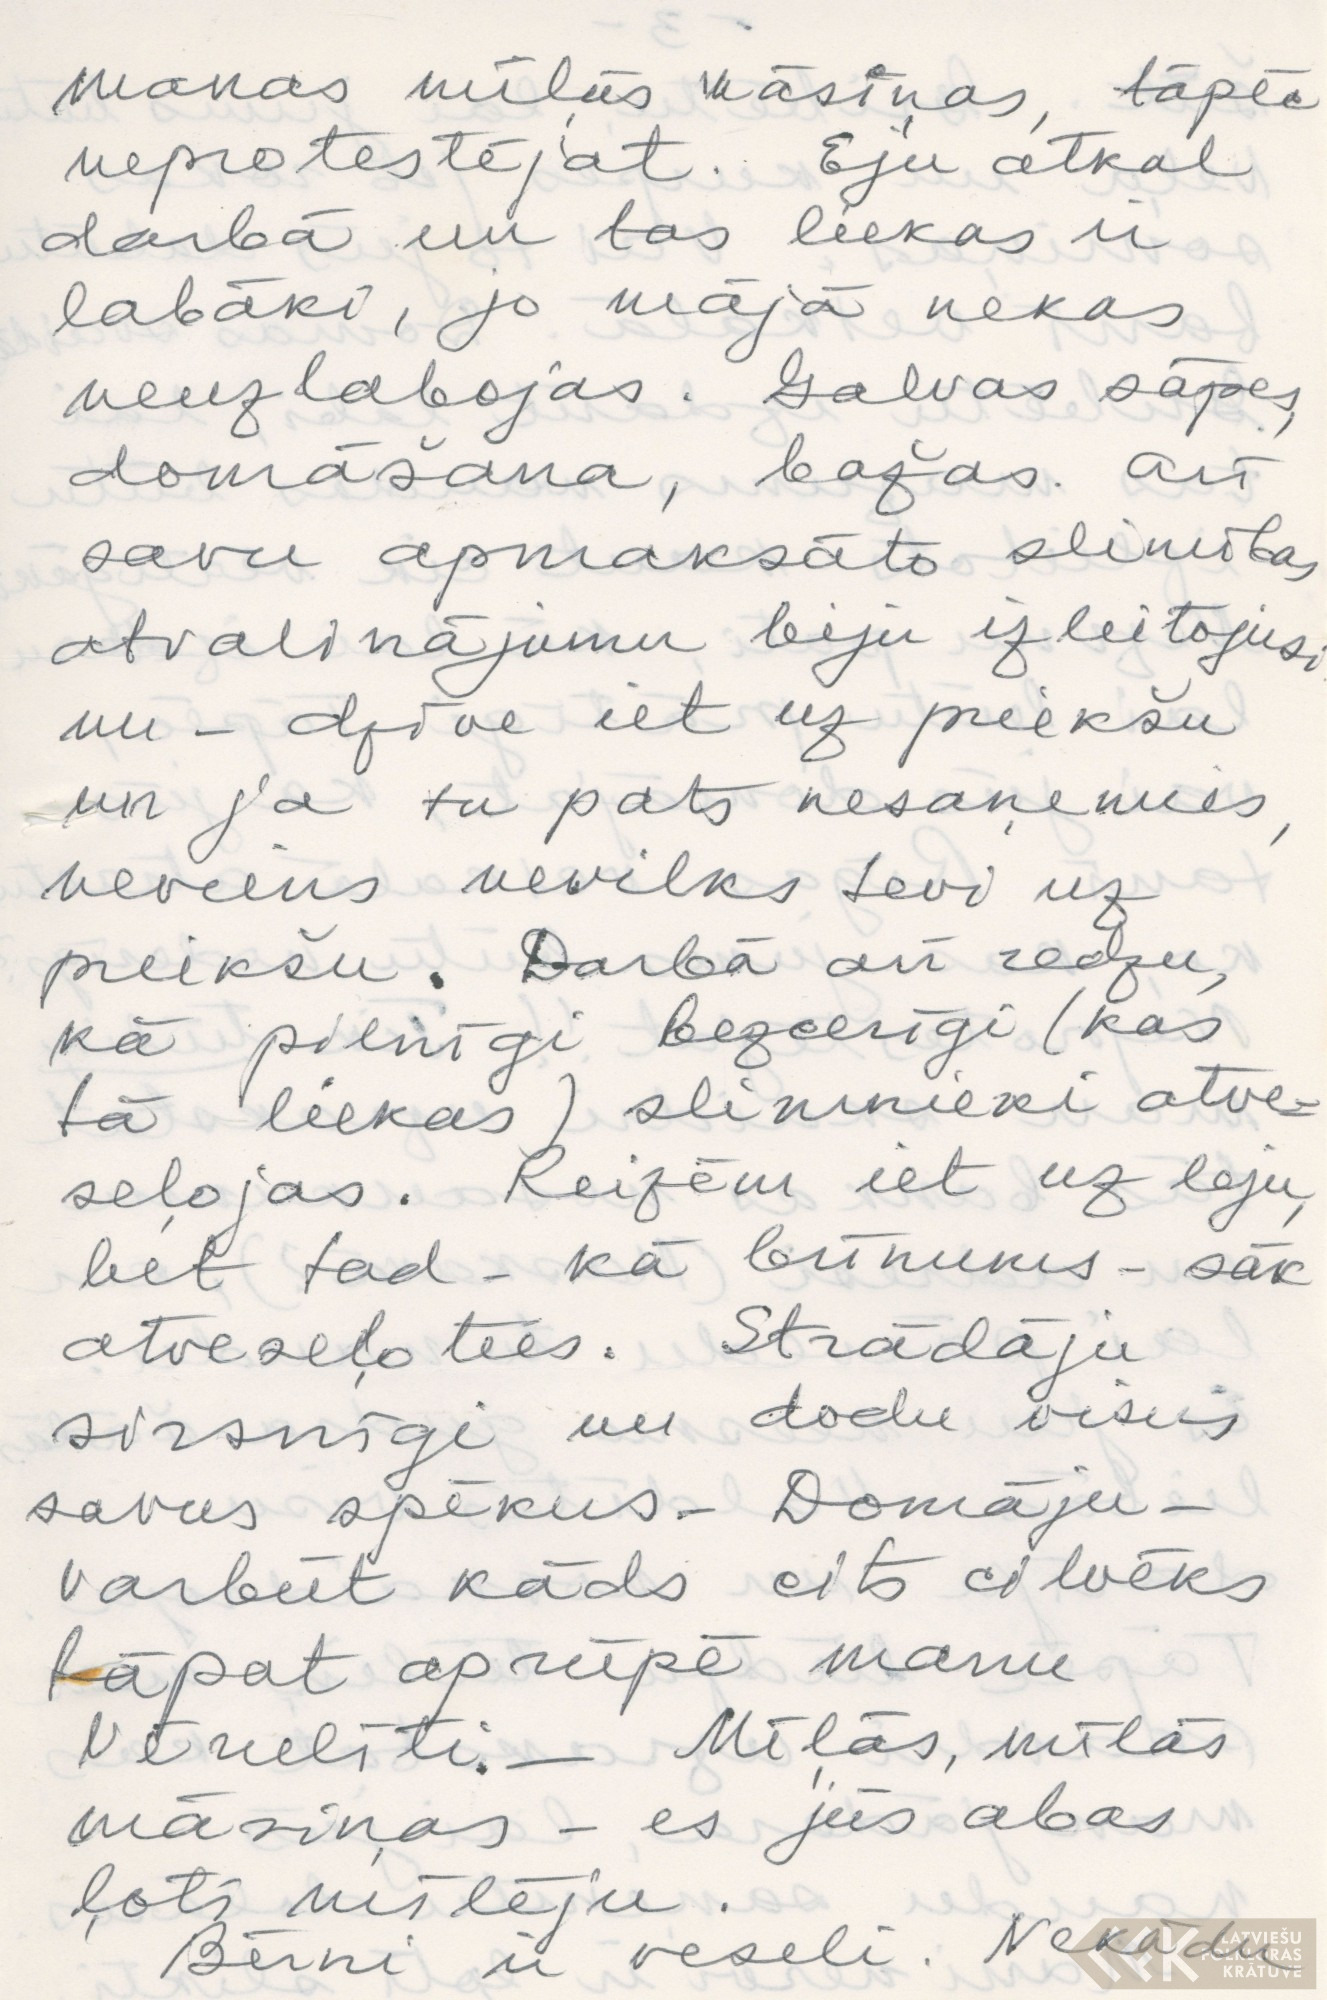 manas mīļās māsiņas, tāpēc
neprotestējat. Eju atkal
darbā un tas liekas ir
labāki, jo mājā nekas
neuzlabojas. Galvas sāpes,
domāšana, bažas. Arī
savu apmaksāto slimības
atvaļinājumu biju izlietojusi
nu – dzīve iet uz priekšu
un ja tu pats nesaņemies,
neviens nevilks tevi uz
priekšu. Darbā arī redzu,
kā pilnīgi bezcerīgi (kas
tā liekas) slimnieki atve-
seļojas. Reizēm iet uz leju,
bet tad – kā brīnums – sāk
atveseļoties. Strādāju
sirsnīgi un dodu visus
savus spēkus – Domāju –
varbūt kāds cits cilvēks
tāpat aprūpē manu
Vērulīti. – Mīļās, mīlās
māsiņas – es jūs abas
ļoti mīlēju.
Bērni ir veseli. Nekādu
LATVIEŠU
FOLKLORAS
KRĀTUVE